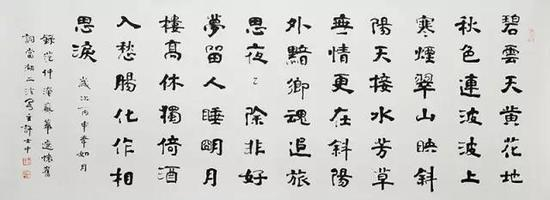 碧雲天黄花地
秋色連波波上
寒煙翠山映斜
陽天接水芳草
無情更在斜陽
外黯鄉魂追旅
思夜〻除非好
夢留人睡明月
樓高休獨倚酒
入愁腸化作相
思淚 歲次丙申年如月
錄范仲淹蘇幕遮懷舊
詞當湖許士中